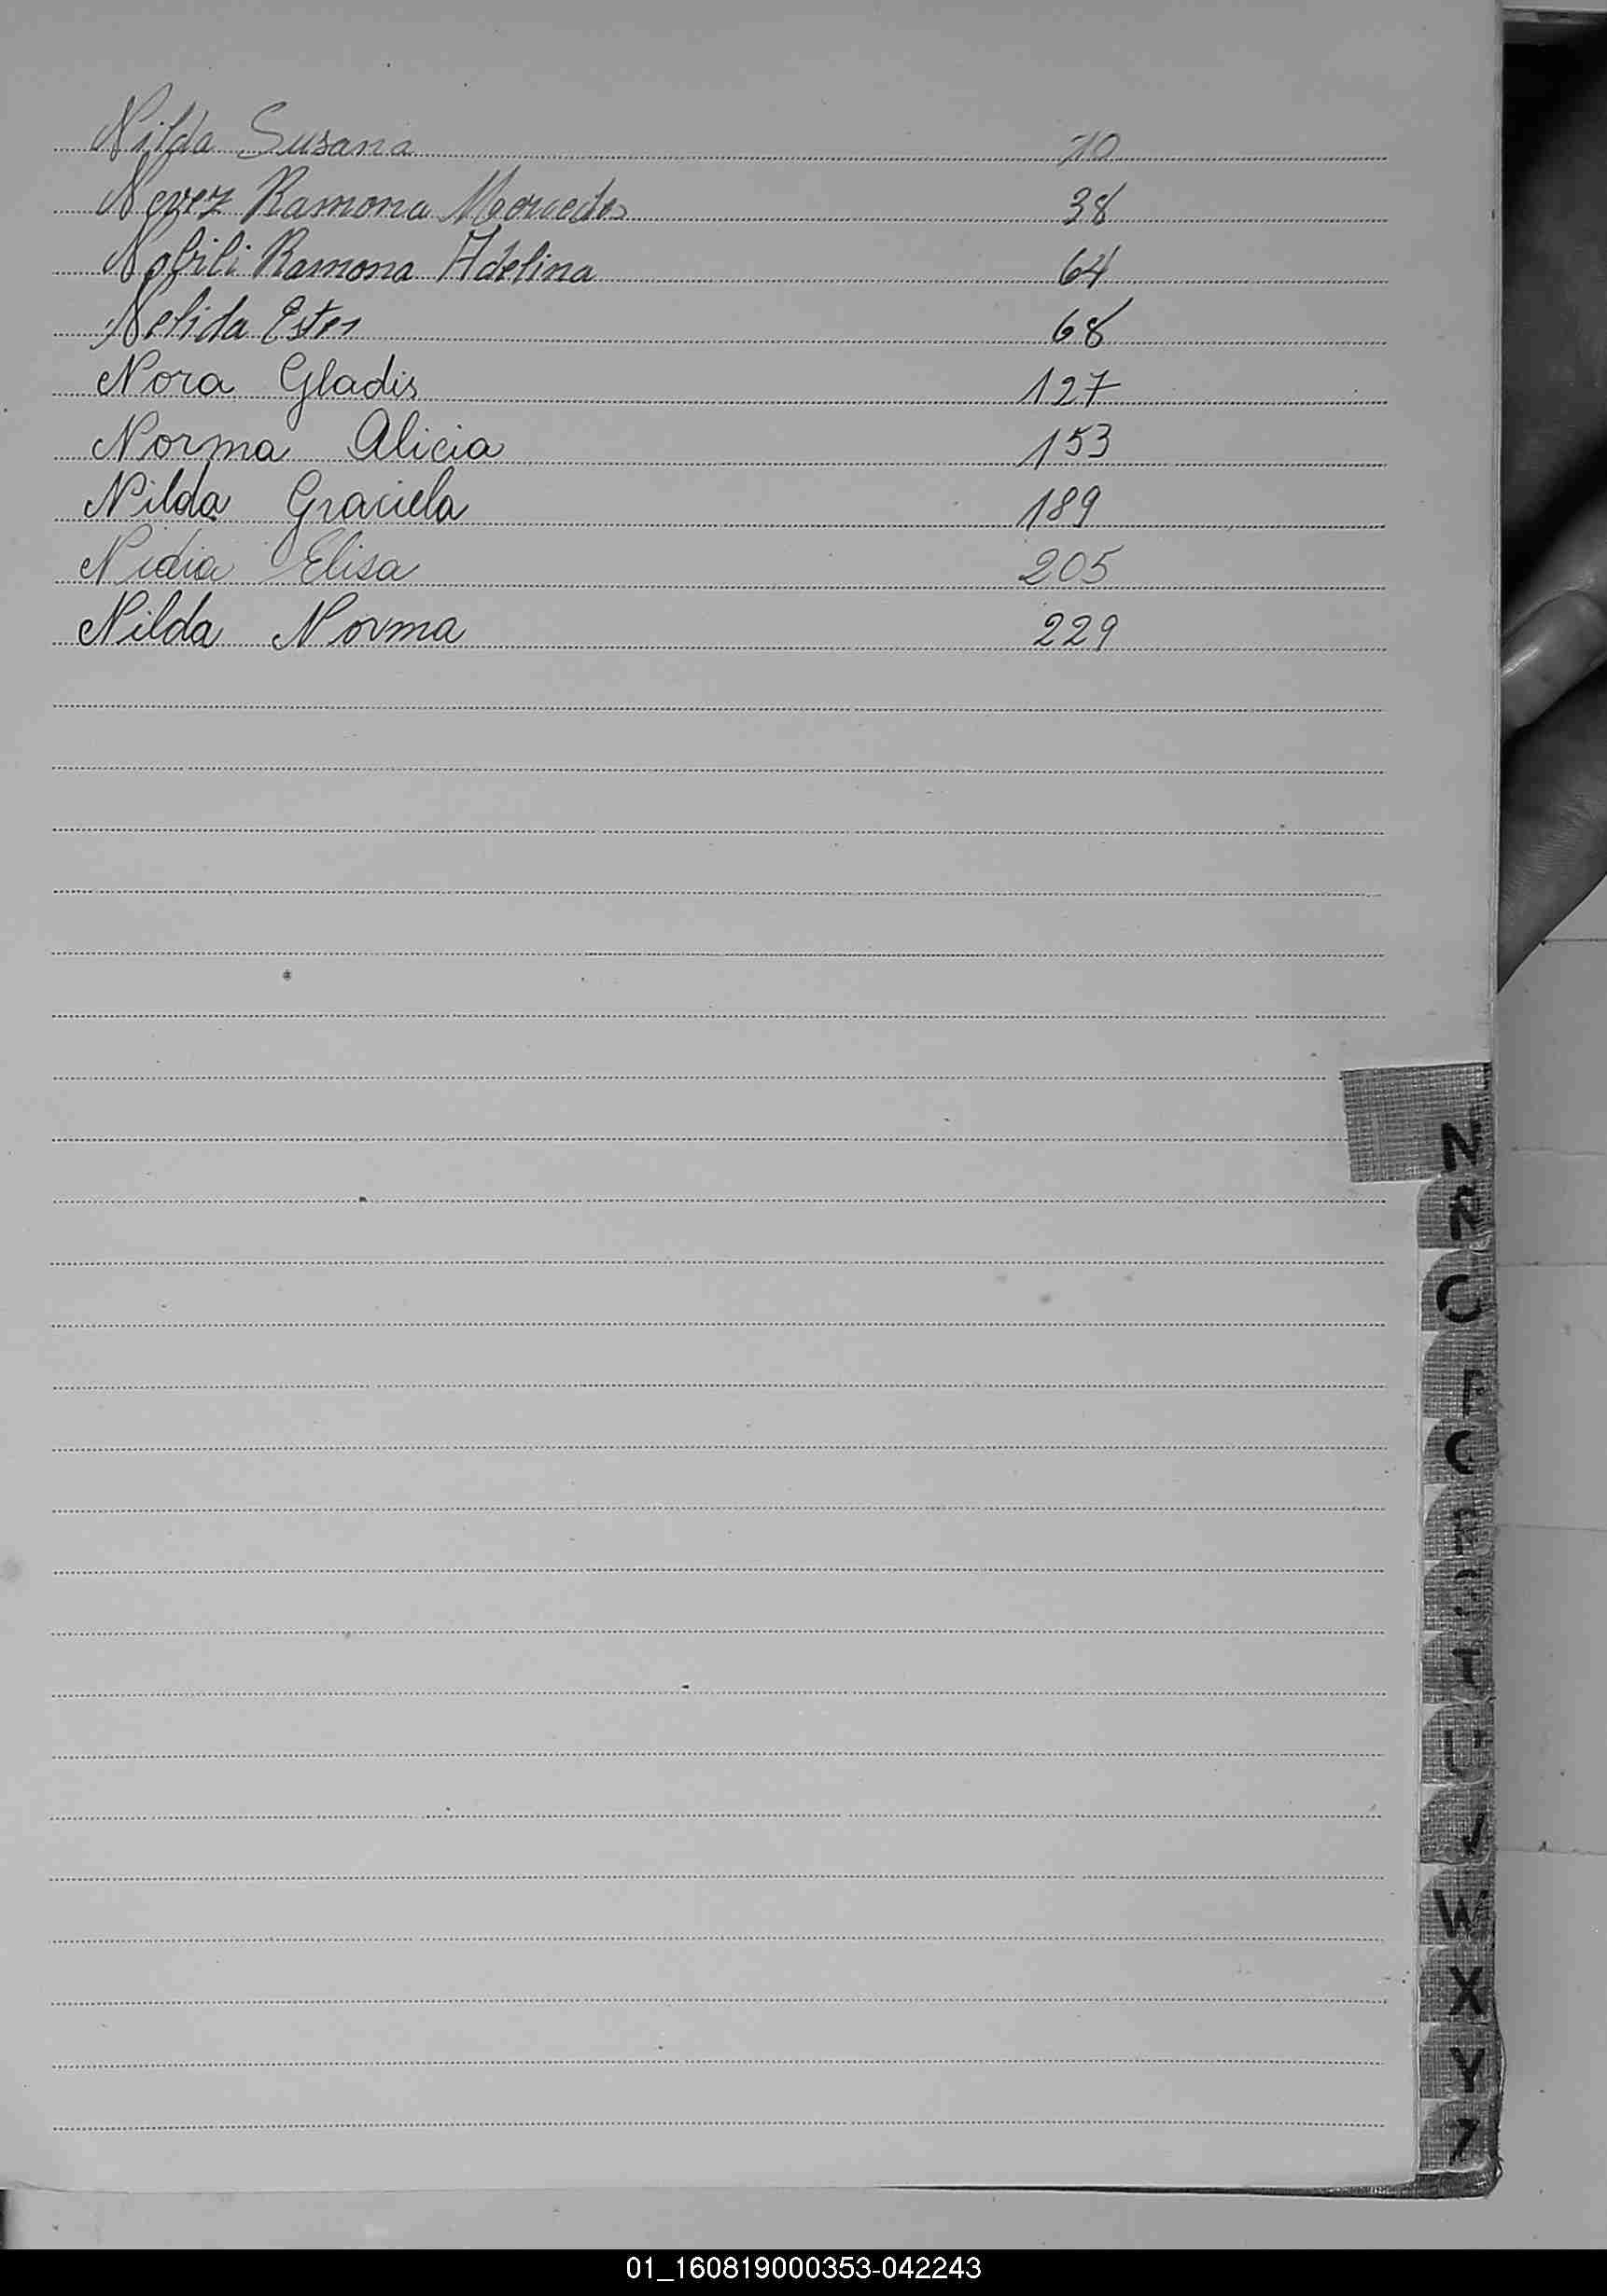 Nilda Susana 10
Nevez Ramona Mercedes 38
Nobili Ramona Adelina 64
Nelida Ester 68
Nora Gladis 127
Norma Alicia 153
Nilda Graciela 189
Nidia Elisa 205
Nilda Norma 229
N
Ñ
O
P
Q
R
S
T
U
V
W
X
Y
Z
01_160819000353-042243